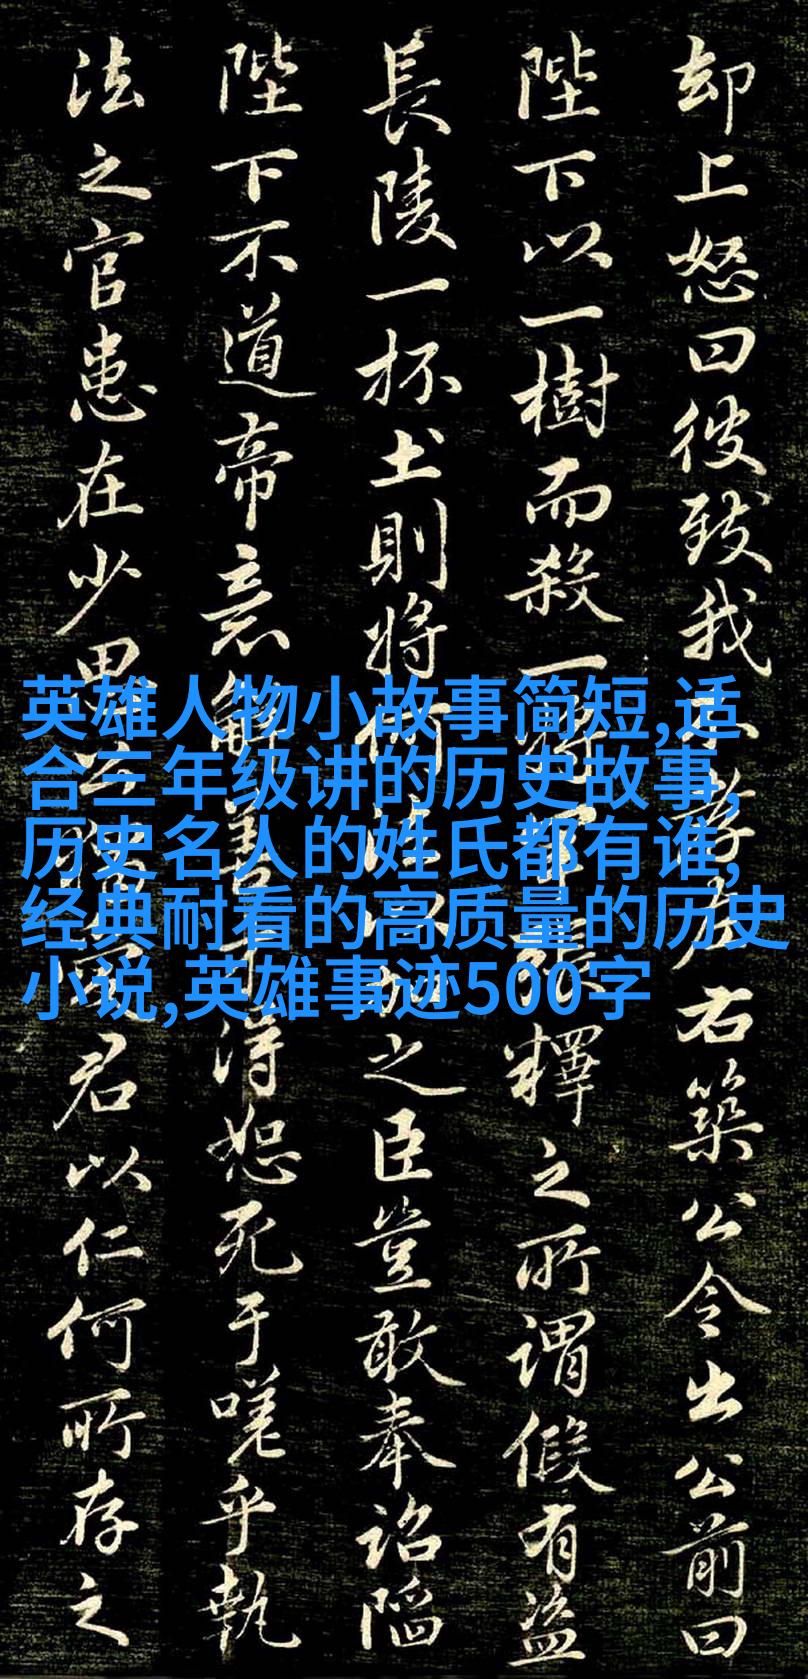 却上怒曰彼致我右築公令出公前曰
陛下以一樹而殺一釋之所謂假有盜
長陵一杯土則將之臣豈敢奉詔陷
陛下不道帝意解得恕死于嗟乎執
法之官患在少君以仁何所存之
英雄人物小故事简短,适
合三年级讲的历史故事,
历史名人的姓氏都有谁,
经典耐看的高质量的历史
小说,英雄事迹500字